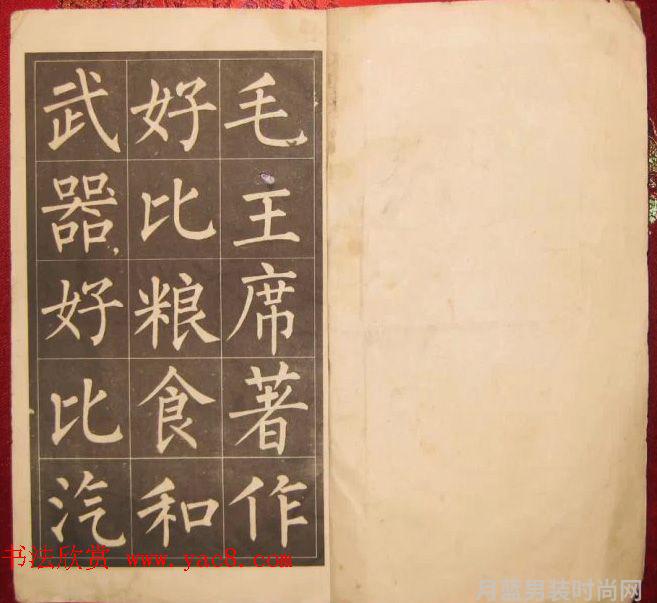 毛主席著作
好比粮食和
武器，好比汽
书法欣赏 www.yac8.com
月蓝男装时尚网